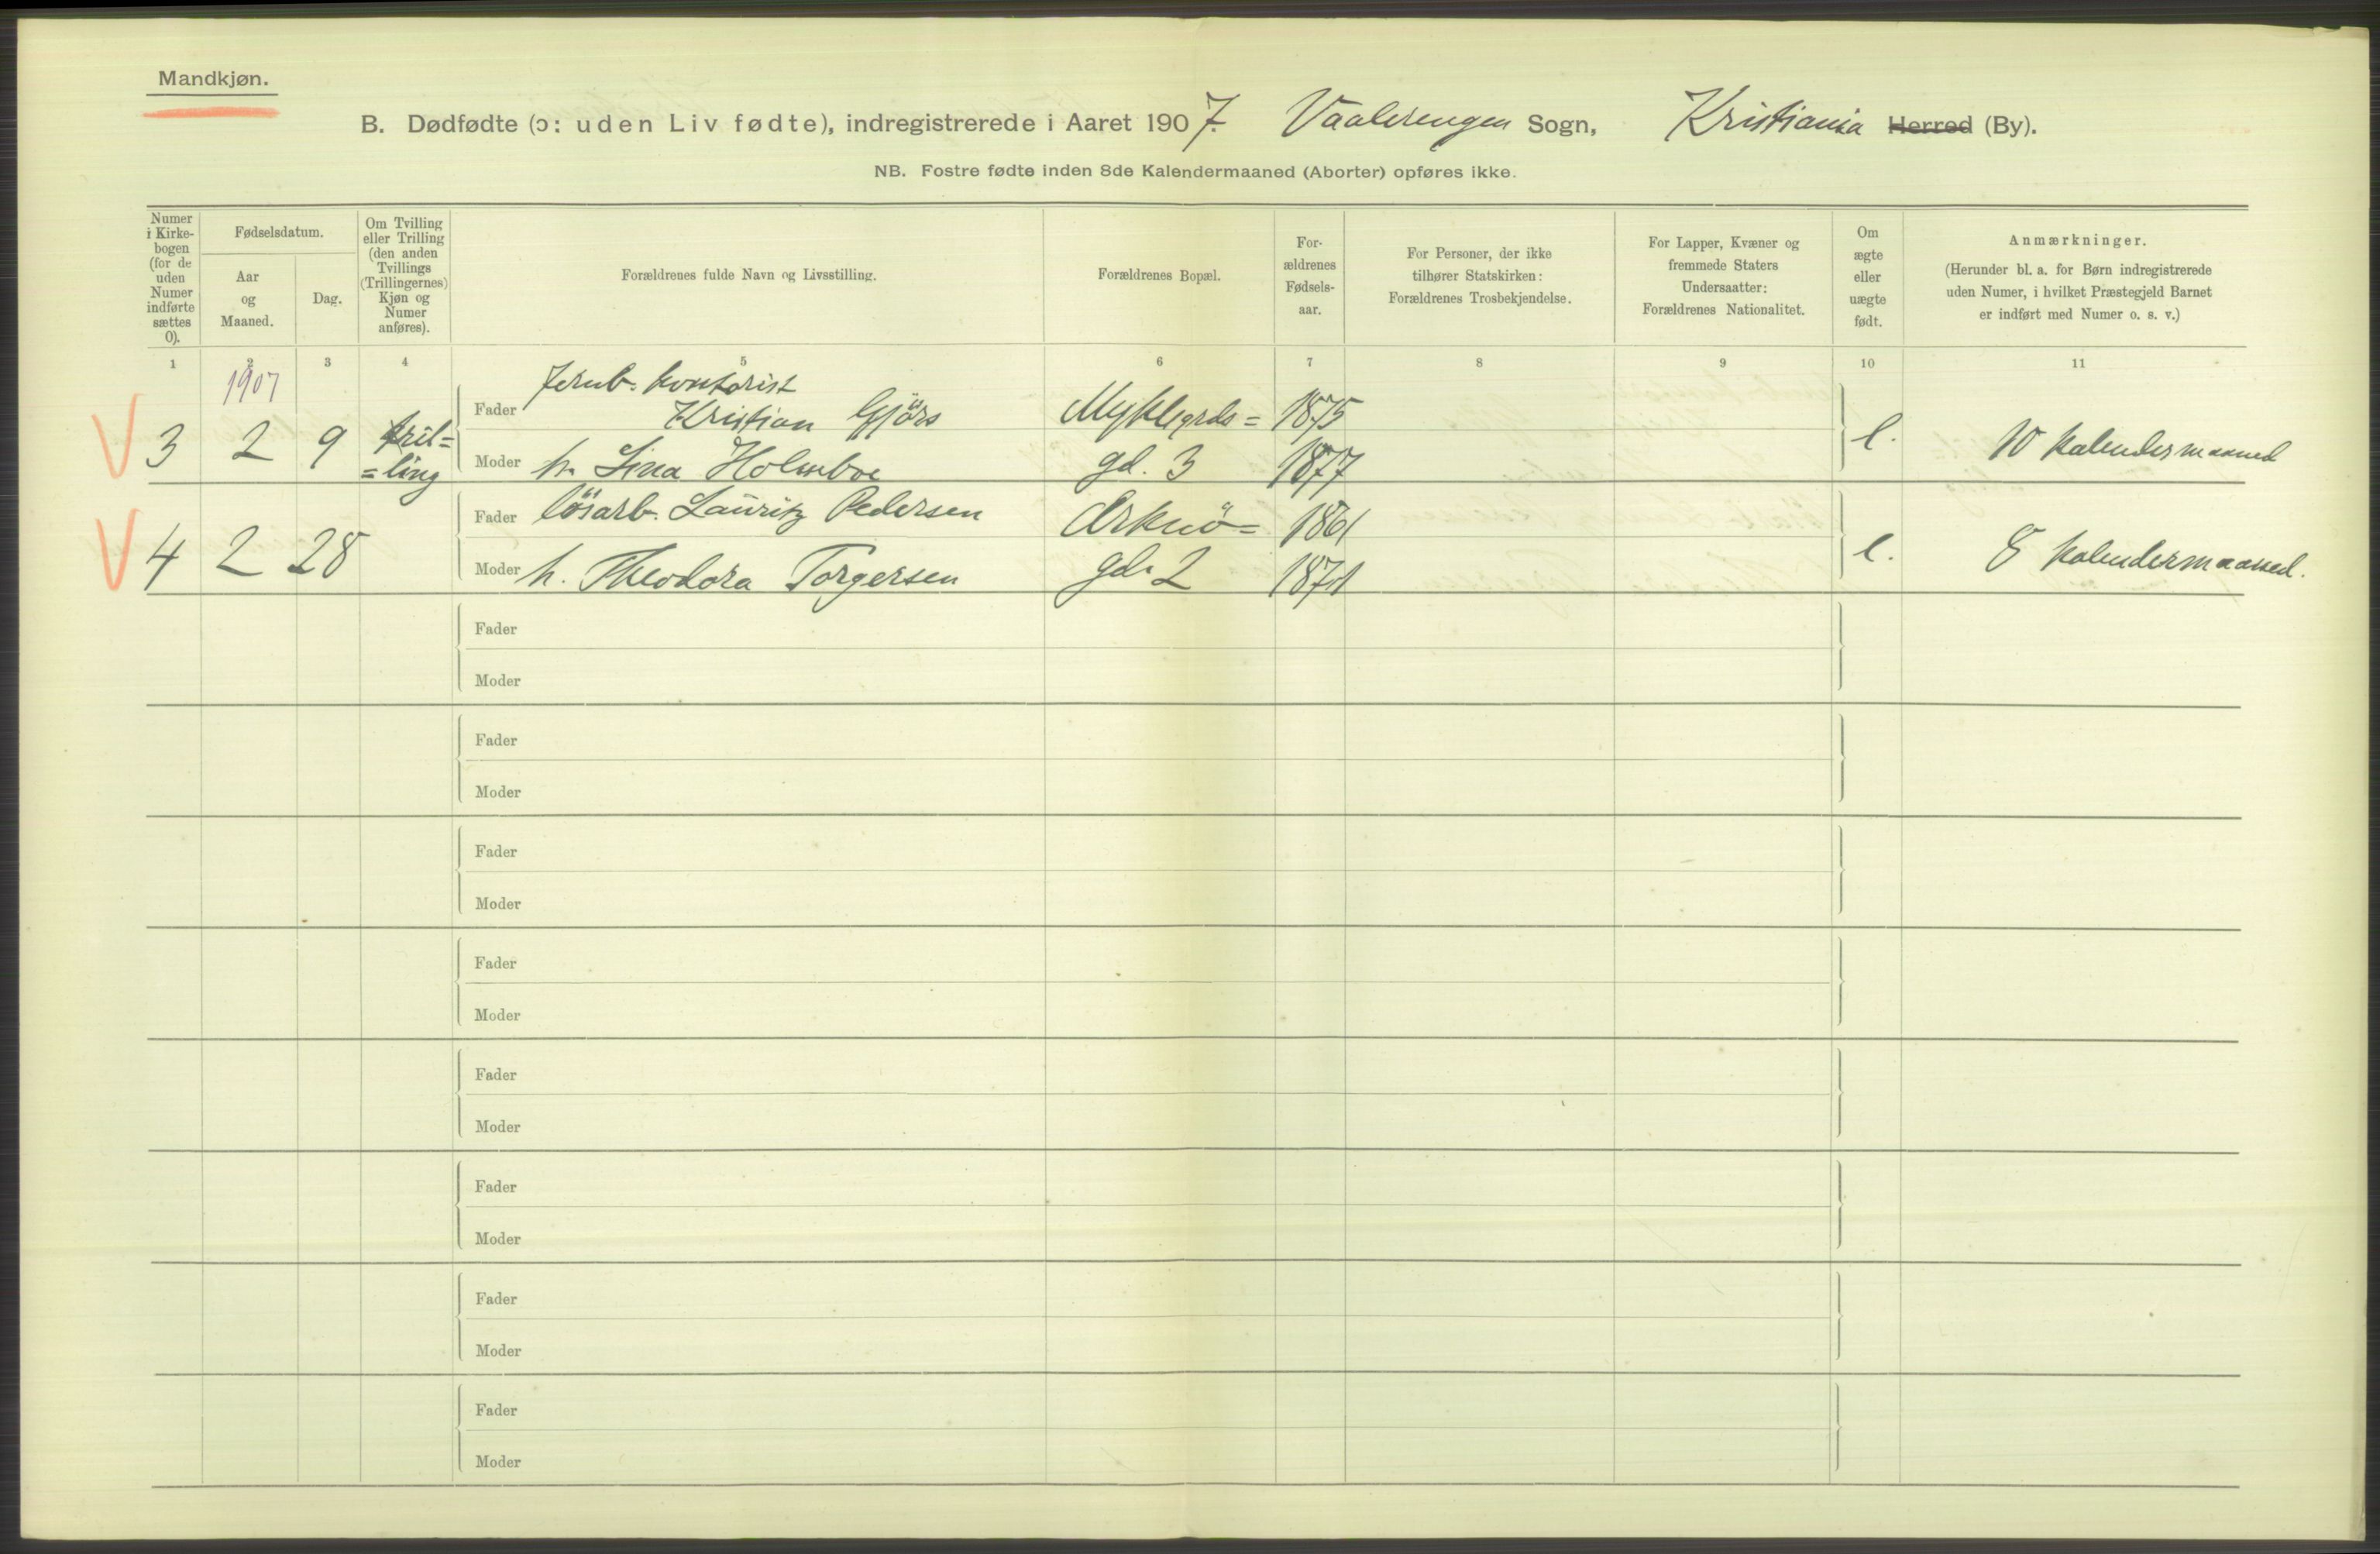 Mandkjøn.
B. Dødfødte (ɔ: uden Liv fødte), indregistrerede i Aaret 1907. Vaalerengen Sogn, Kristiania Herred (By).
NB. Fostre fødte inden 8de Kalendermaaned (Aborter) opføres ikke.
Numer
i Kirke-
bogen
(for de
uden
Numer
indførte
sættes
0).
Fødselsdatum.
Aar
og
Maaned.
Dag.
Om Tvilling
eller Trilling
(den anden
Tvillings
(Trillingernes)
Kjøn og
Numer
anføres).
Forældrenes fulde Navn og Livsstilling.
Forældrenes Bopæl.
For-
ældrenes
Fødsels-
aar.
For Personer, der ikke
tilhører Statskirken:
Forældrenes Trosbekjendelse.
For Lapper, Kvæner og
fremmede Staters
Undersaatter:
Forældrenes Nationalitet.
Om
ægte
eller
uægte
født.
Anmærkninger.
(Herunder bl. a. for Børn indregistrerede
uden Numer, i hvilket Præstegjeld Barnet
er indført med Numer o. s. v.)
1 2 3 4 5 6 7 8 9 10 11
1907
Jernb. kontorist
Fader Kristian Gjörs Myklegrds= 1875
V 3 2 9 tril= =ling
Moder h. Lina Holmboe gd. 3 1877
e. 10 kalendermaaned
Fader lösarb. Lauritz Pedersen 1861
V 4 2 28
Moder h. Theodora Torgersen gd. 2 1871
e. 8 kalendermaaned.
Fader
Moder
Fader
Moder
Fader
Moder
Fader
Moder
Fader
Moder
Fader
Moder
Fader
Moder
Fader
Moder